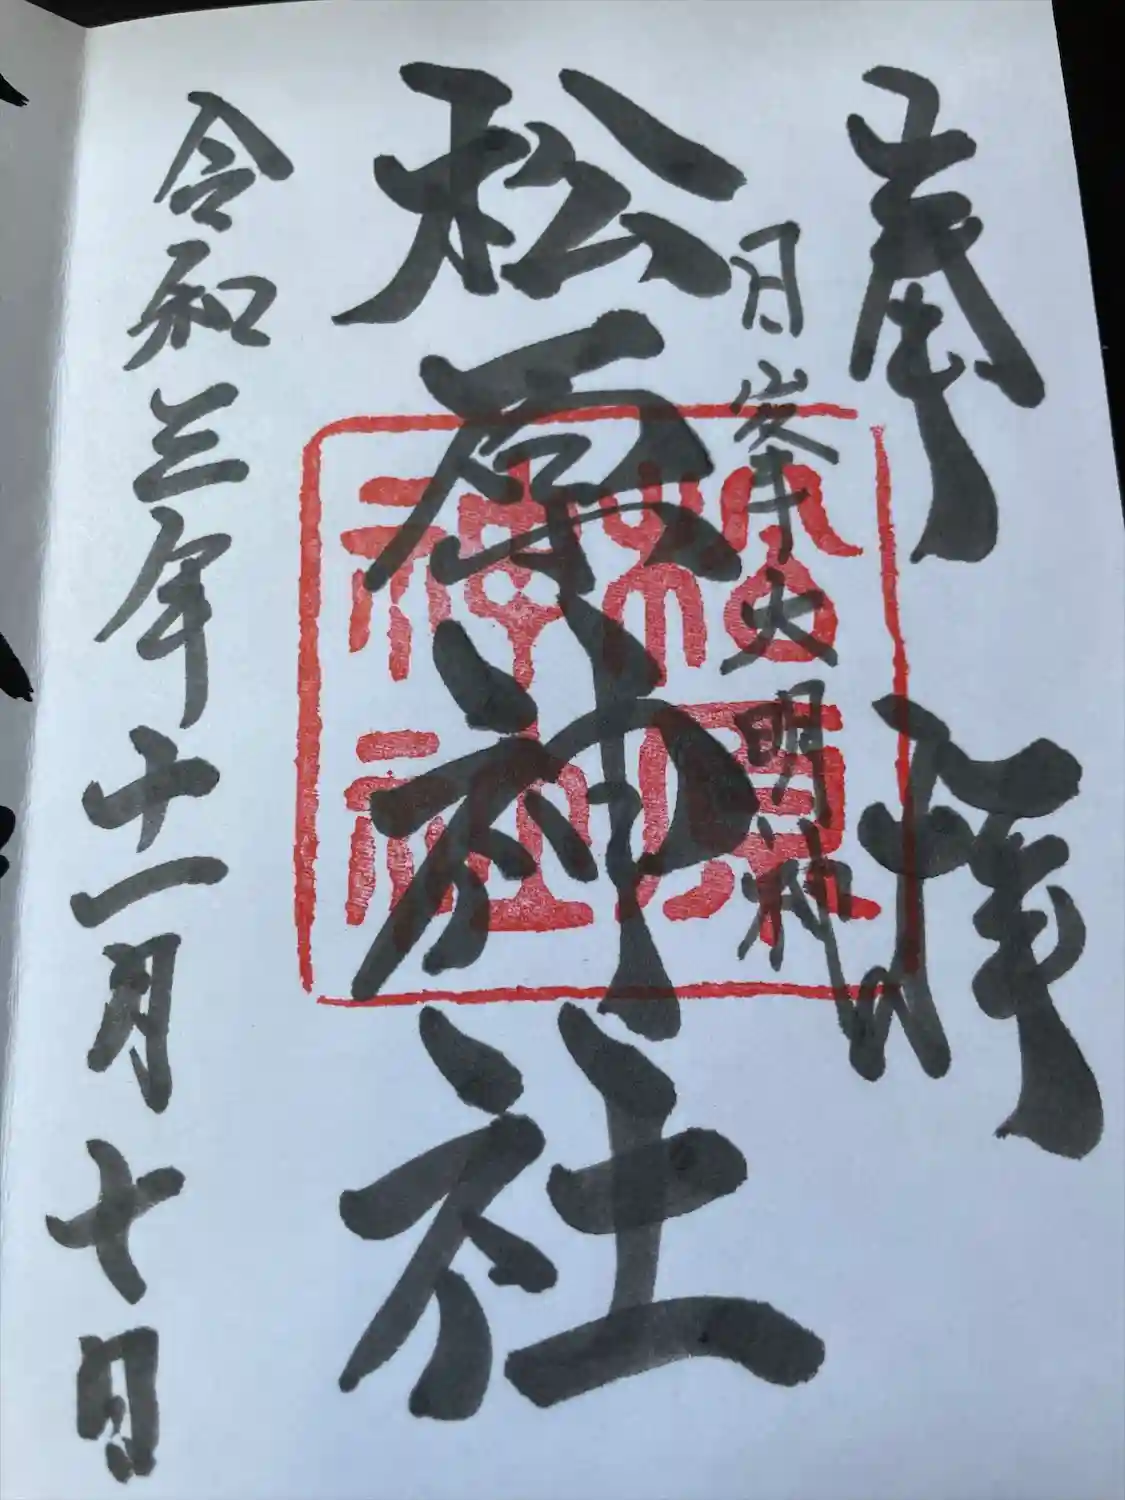 奉拝
日峯大明神
松原神社
松原神社
令和三年十一月十日